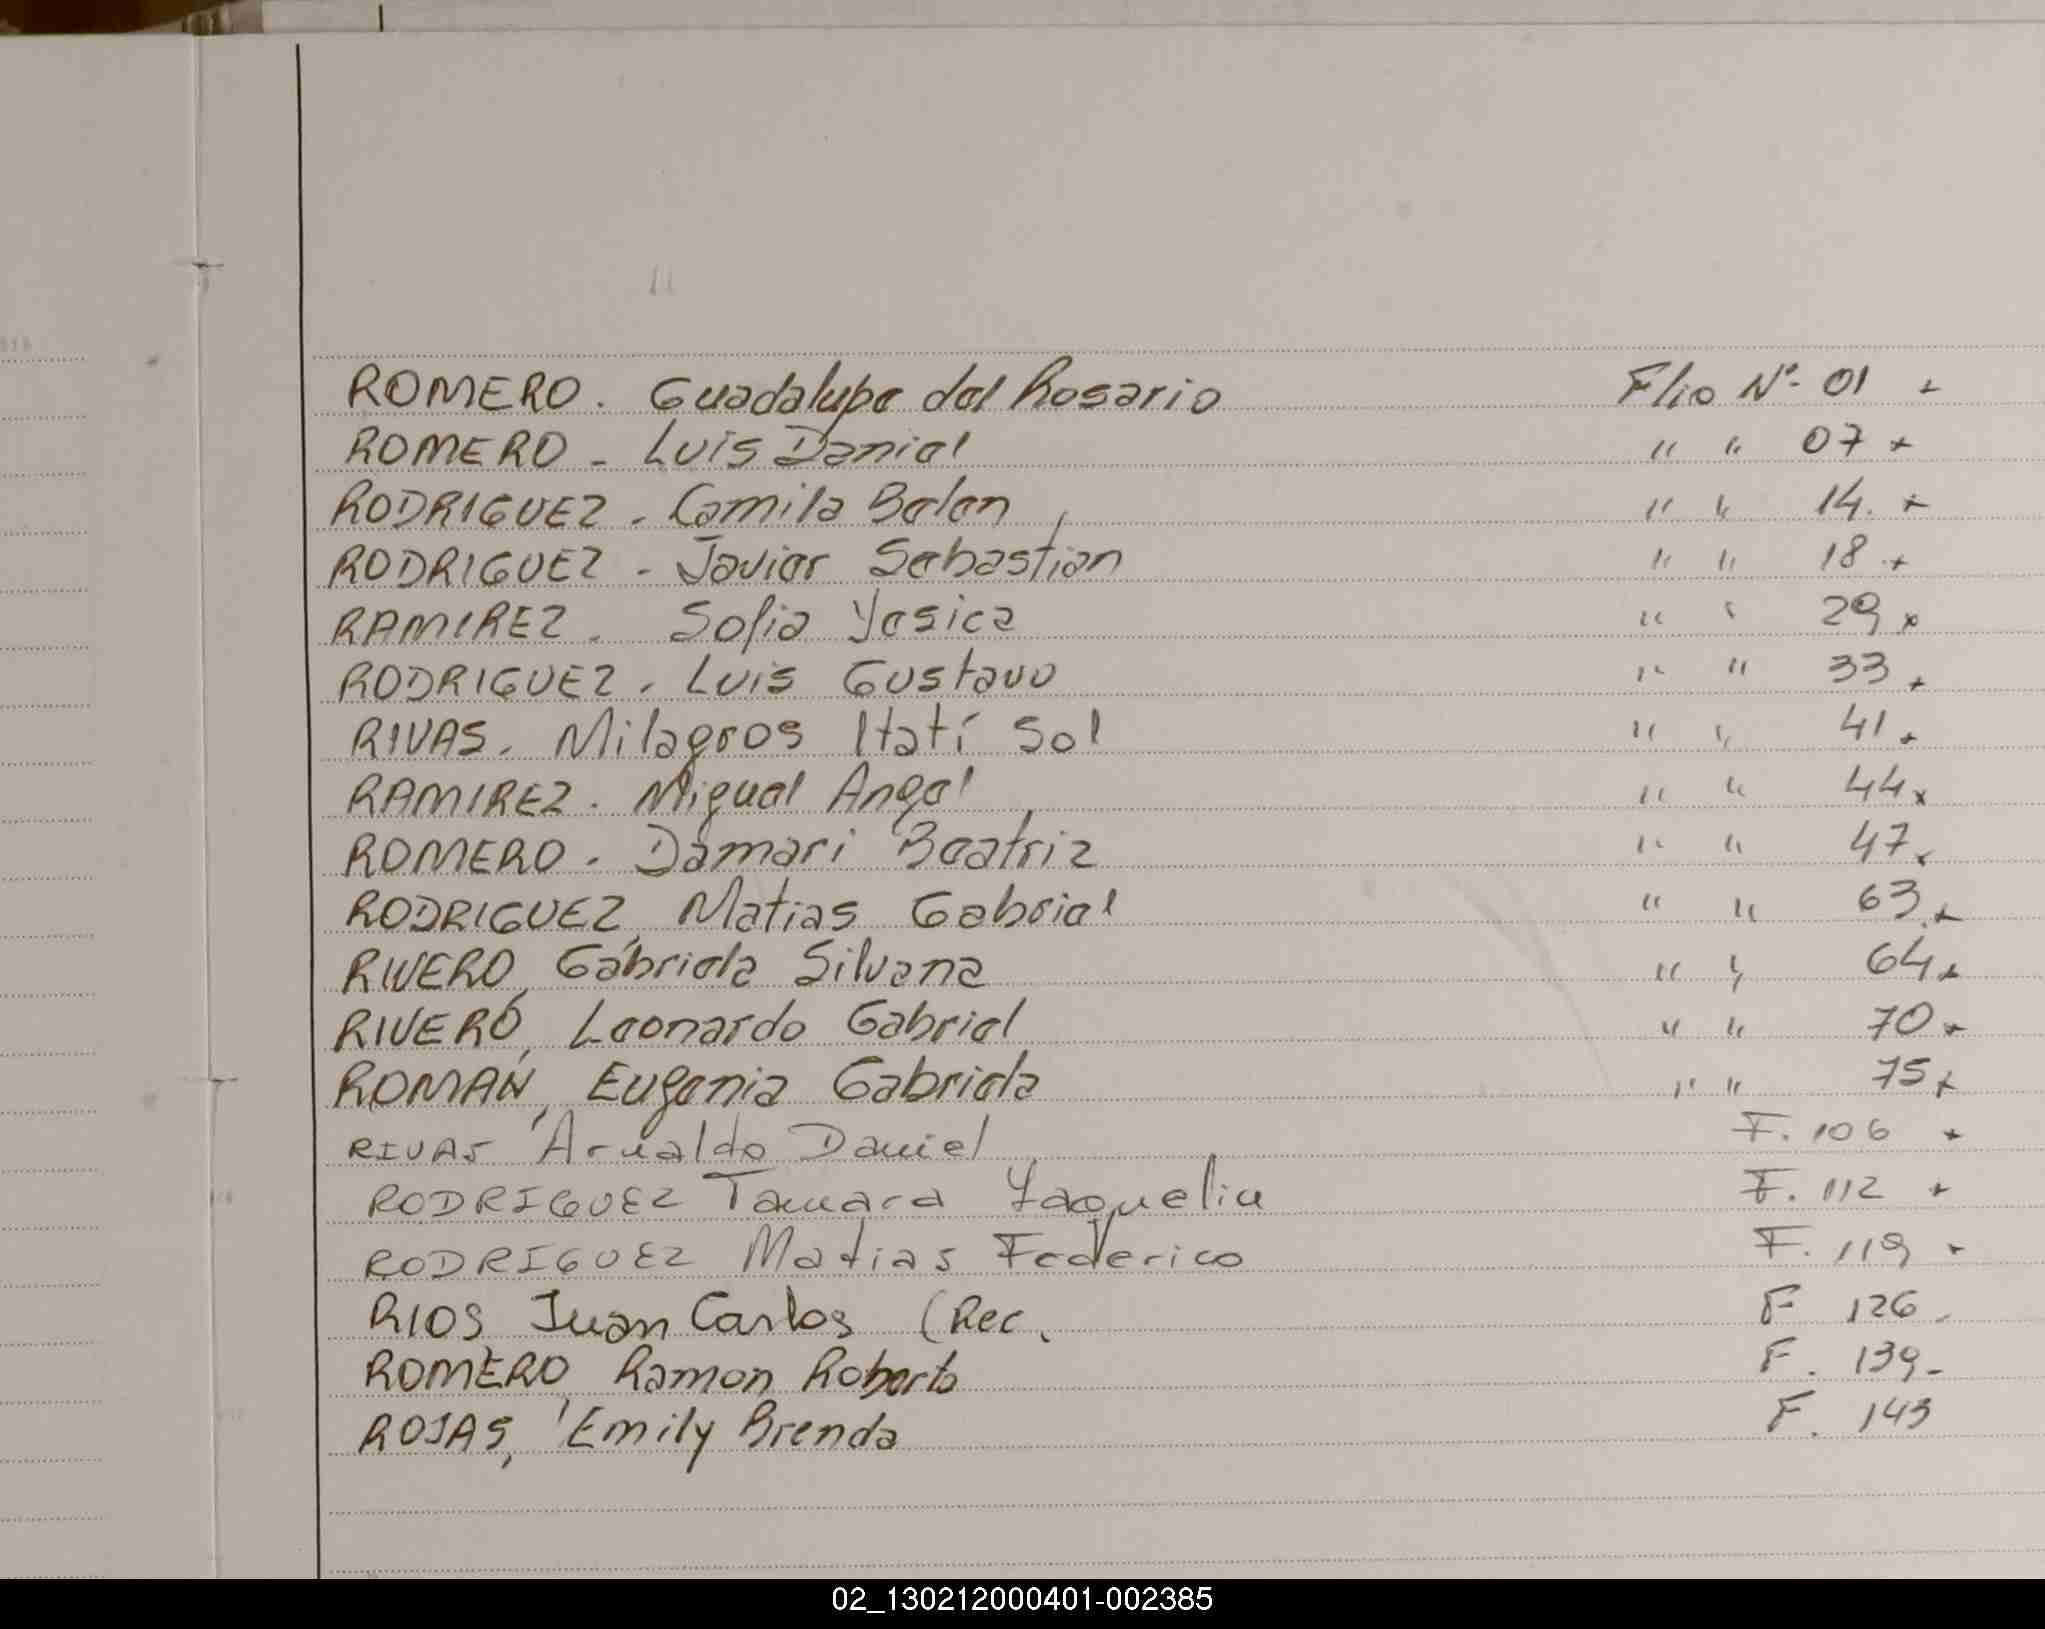 ROMERO. Guadalupe del Rosario Flio Nº- 01 +
ROMERO - Luis Daniel " " 07 +
RODRIGUEZ - Camila Belen " " 14. +
RODRIGUEZ - Javier Sebastian " " 18 +
RAMIREZ. Sofia Yesica " " 29 x
RODRIGUEZ. Luis Gustavo " " 33 +
RIVAS. Milagros Itatí Sol " " 41 +
RAMIREZ. Miguel Angel " " 44 x
ROMERO. Damari Beatriz " " 47 x
RODRIGUEZ, Matias Gabriel " " 63 +
RIVERO, Gabriela Silvana " " 64 +
RIVERO, Leonardo Gabriel " " 70 +
ROMAN, Eugenia Gabriela " " 75 +
RIVAS Arnaldo Daniel F. 106 +
RODRIGUEZ Tamara Yaquelin F. 112 +
RODRIGUEZ Matias Federico F. 119 +
RIOS Juan Carlos (Rec. F 126 -
ROMERO, Ramon Roberto F. 139 -
ROJAS, Emily Brenda F. 143
02_130212000401-002385